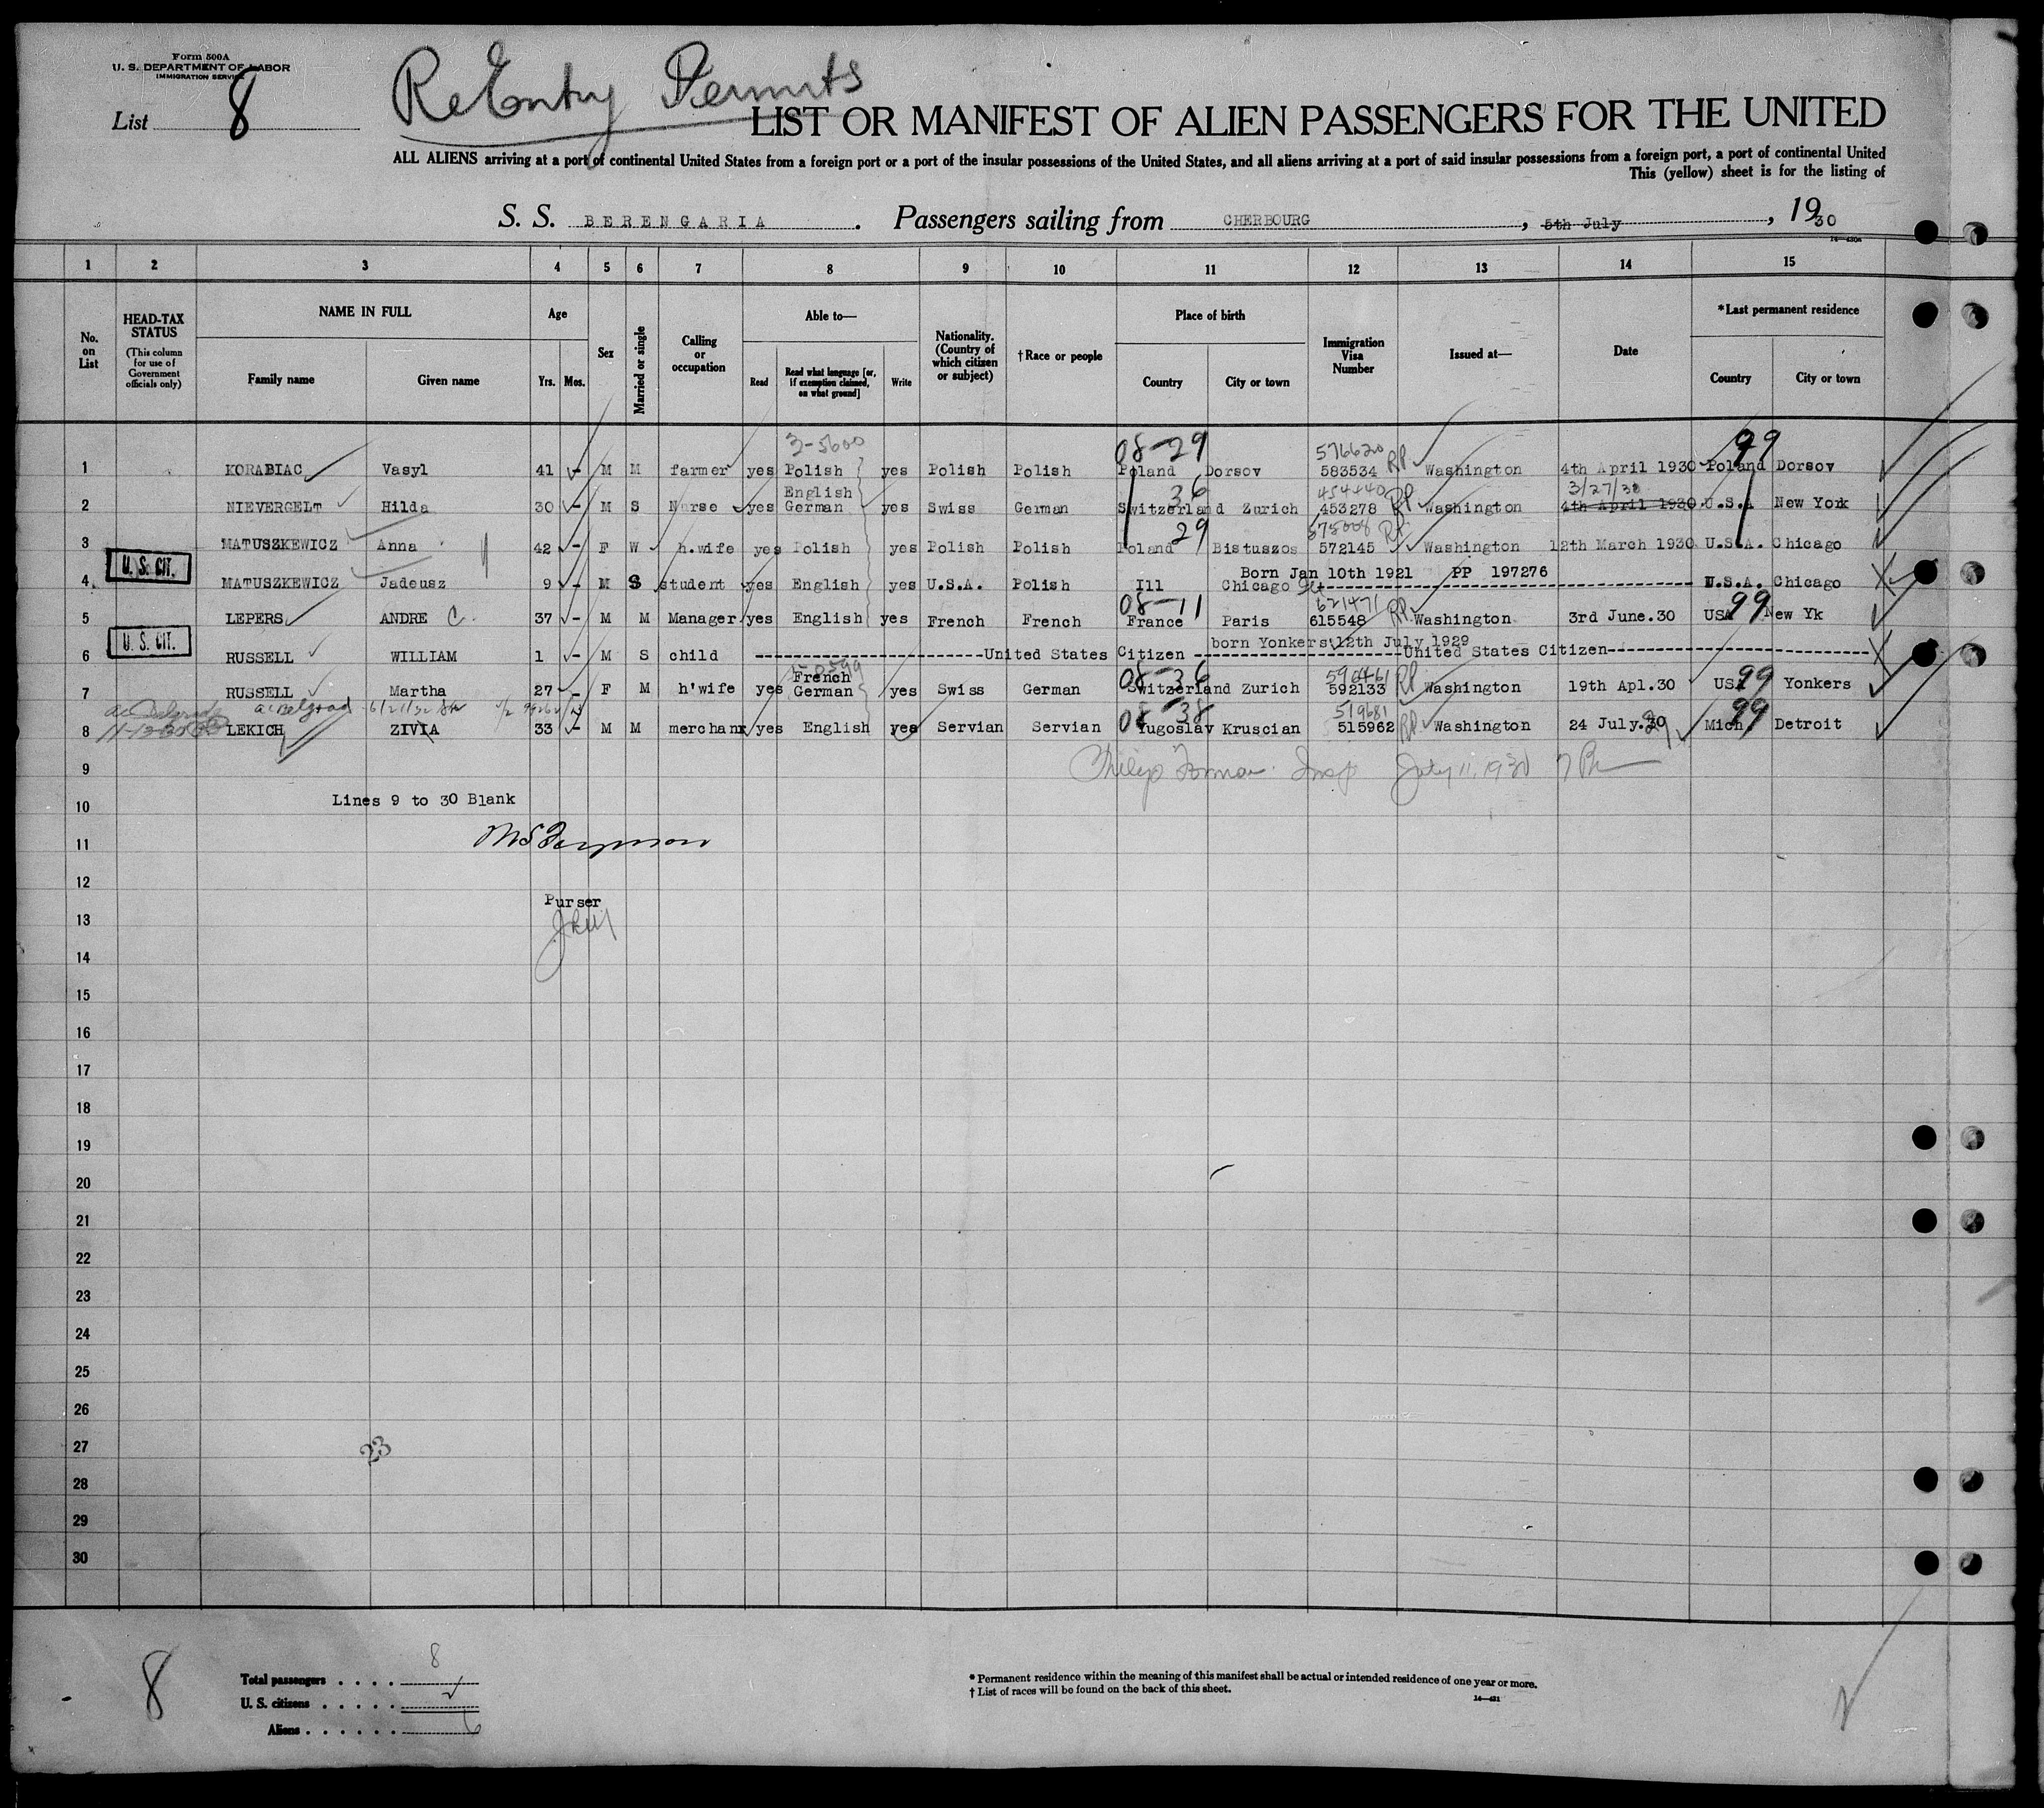 Form 500A
U. S. DEPARTMENT OF LABOR
IMMIGRATION SERVICE
List 8
ReEntry Permits
LIST OR MANIFEST OF ALIEN PASSENGERS FOR THE UNITED
ALL ALIENS arriving at a port of continental United States from a foreign port or a port of the insular possessions of the United States, and all aliens arriving at a port of said insular possessions from a foreign port, a port of continental United
This (yellow) sheet is for the listing of
S. S. BERENGARIA. Passengers sailing from CHERBOURG, 5th July, 1930
14—430a
1 2 3 4 5 6 7 8 9 10 11 12 13 14 15
No. on List
HEAD-TAX STATUS (This column for use of Government officials only)
NAME IN FULL
Family name Given name
Age
Yrs. Mos.
Sex
Married or single
Calling or occupation
Able to—
Read
Read what language [or, if exemption claimed, on what ground]
Write
Nationality. (Country of which citizen or subject)
†Race or people
Place of birth
Country City or town
Immigration Visa Number
Issued at—
Date
*Last permanent residence
Country City or town
3-5600 08-29 576620 99
1 KORABIAC Vasyl 41 - M M farmer yes Polish yes Polish Polish Poland Dorsov 583534 RP Washington 4th April 1930 Poland Dorsov
English 36 454440 3/27/30
2 NIEVERGELT Hilda 30 - M S Nurse yes German yes Swiss German Switzerland Zurich 453278 RP Washington 4th April 1930 U.S.A New York
29 RP
3 MATUSZKEWICZ Anna 42 - F W h.wife yes Polish yes Polish Polish Poland Bistuszos 572145 Washington 12th March 1930 U.S.A. Chicago
U. S. CIT.
Born Jan 10th 1921 PP 197276
4 MATUSZKEWICZ Jadeusz 9 - M S student yes English yes U.S.A. Polish Ill Chicago U.S.A. Chicago
08-11 621471 99
5 LEPERS ANDRE C. 37 - M M Manager yes English yes French French France Paris 615548 RP Washington 3rd June.30 USA New Yk
U. S. CIT.
born Yonkers 12th July 1929
6 RUSSELL WILLIAM 1 - M S child United States Citizen United States Citizen
French 08-36 596461 99
7 RUSSELL Martha 27 - F M h'wife yes German yes Swiss German Switzerland Zurich 592133 RP Washington 19th Apl.30 USA Yonkers
Belgrad 08-38 519681 99
8 LEKICH ZIVIA 33 - M M merchant yes English yes Servian Servian Yugoslav Kruscian 515962 RP Washington 24 July.30 29 Mich Detroit
9 Insp July 11, 1930
10 Lines 9 to 30 Blank
11
12
Purser
13
14
15
16
17
18
19
20
21
22
23
24
25
26
27 23
28
29
30
8
Total passengers . . . . 8
U. S. citizens . . . . .
Aliens . . . . . . 6
* Permanent residence within the meaning of this manifest shall be actual or intended residence of one year or more.
† List of races will be found on the back of this sheet.
14—421